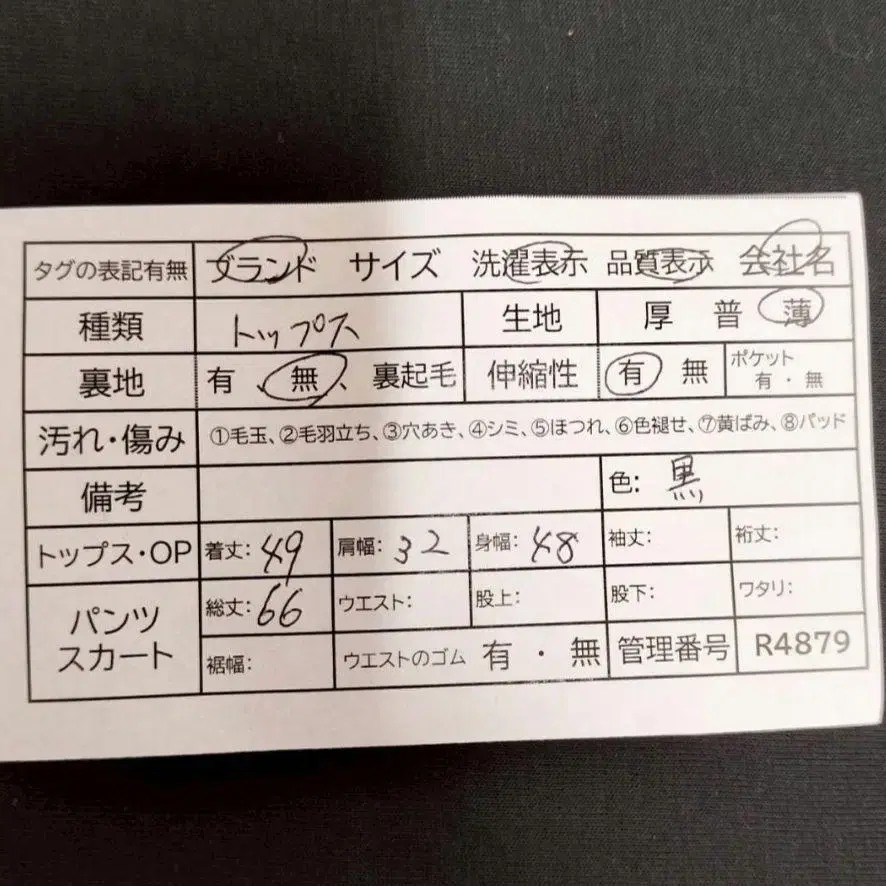 タグの表記有無 ブランド サイズ 洗濯表示 品質表示 会社名
種類 トップス 生地 厚 普 薄
裏地 有、無、裏起毛 伸縮性 有 無 ポケット 有・無
汚れ・傷み ①毛玉、②毛羽立ち、③穴あき、④シミ、⑤ほつれ、⑥色褪せ、⑦黄ばみ、⑧パッド
備考 色: 黒
トップス・OP 着丈: 49 肩幅: 32 身幅: 48 袖丈: 裄丈:
パンツ スカート 総丈: 66 ウエスト: 股上: 股下: ワタリ:
裾幅: ウエストのゴム 有・無 管理番号 R4879